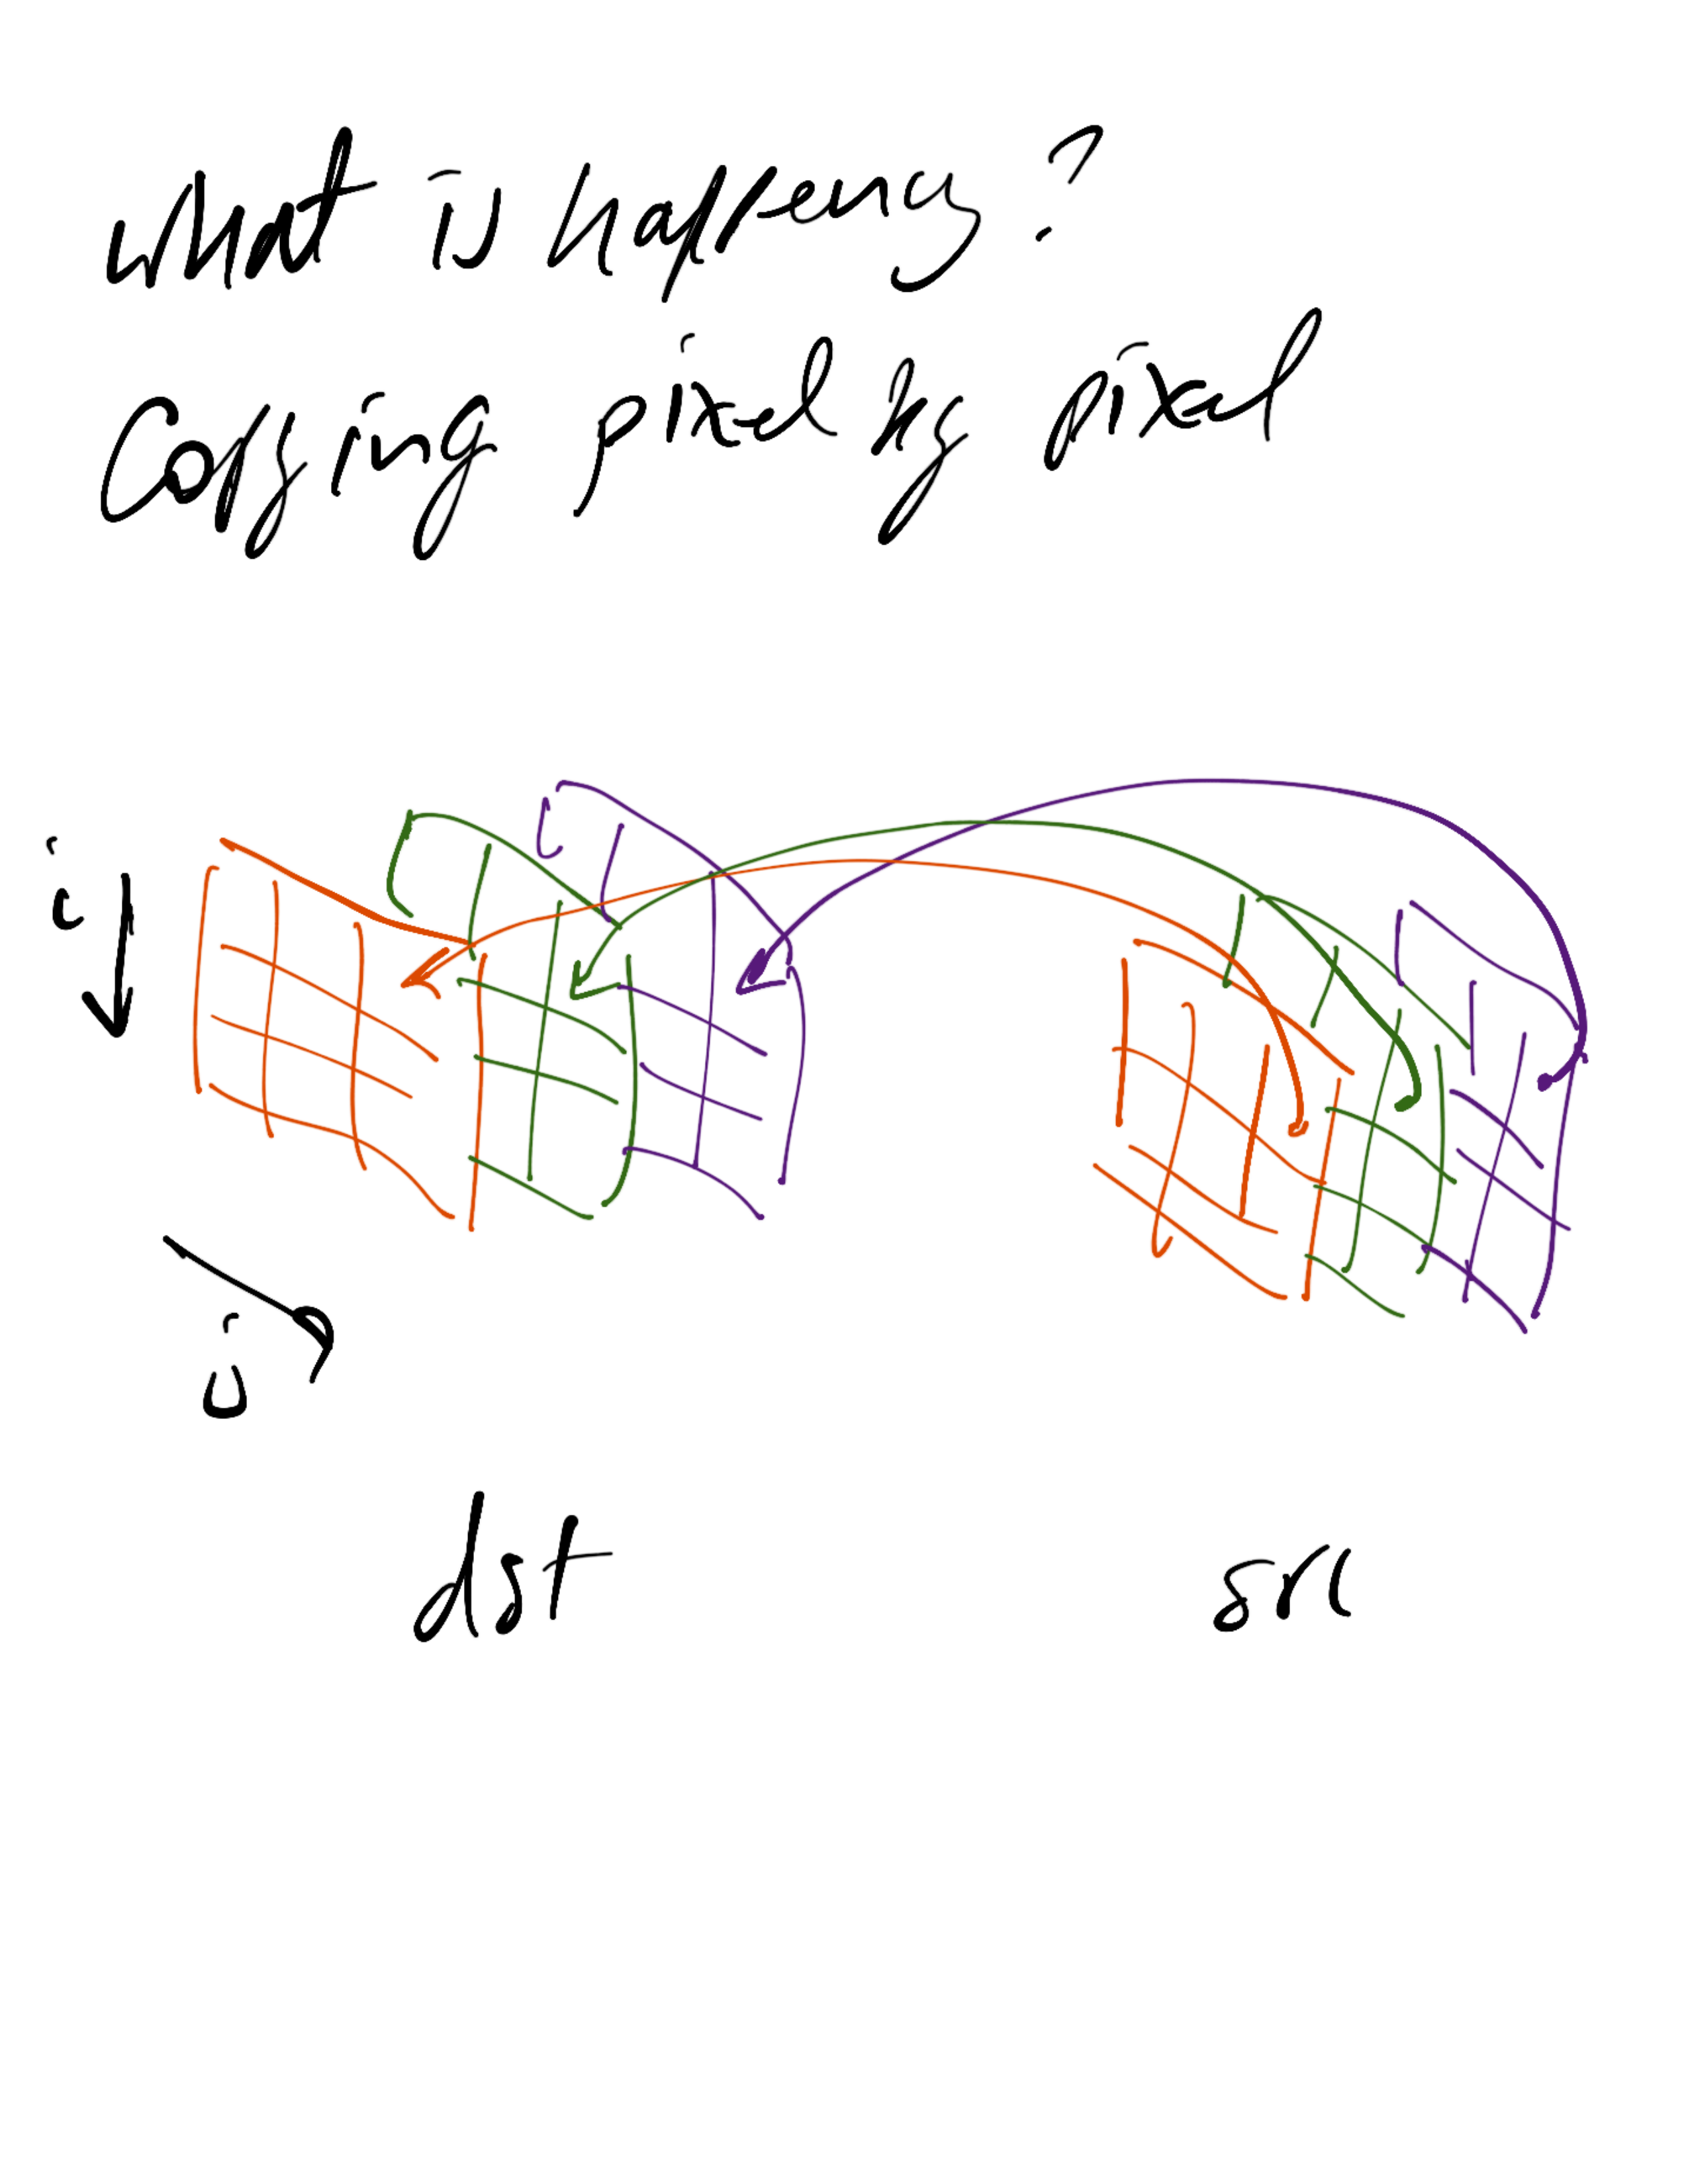 what is happening?
Copying pixel by pixel
i
j
dst
src